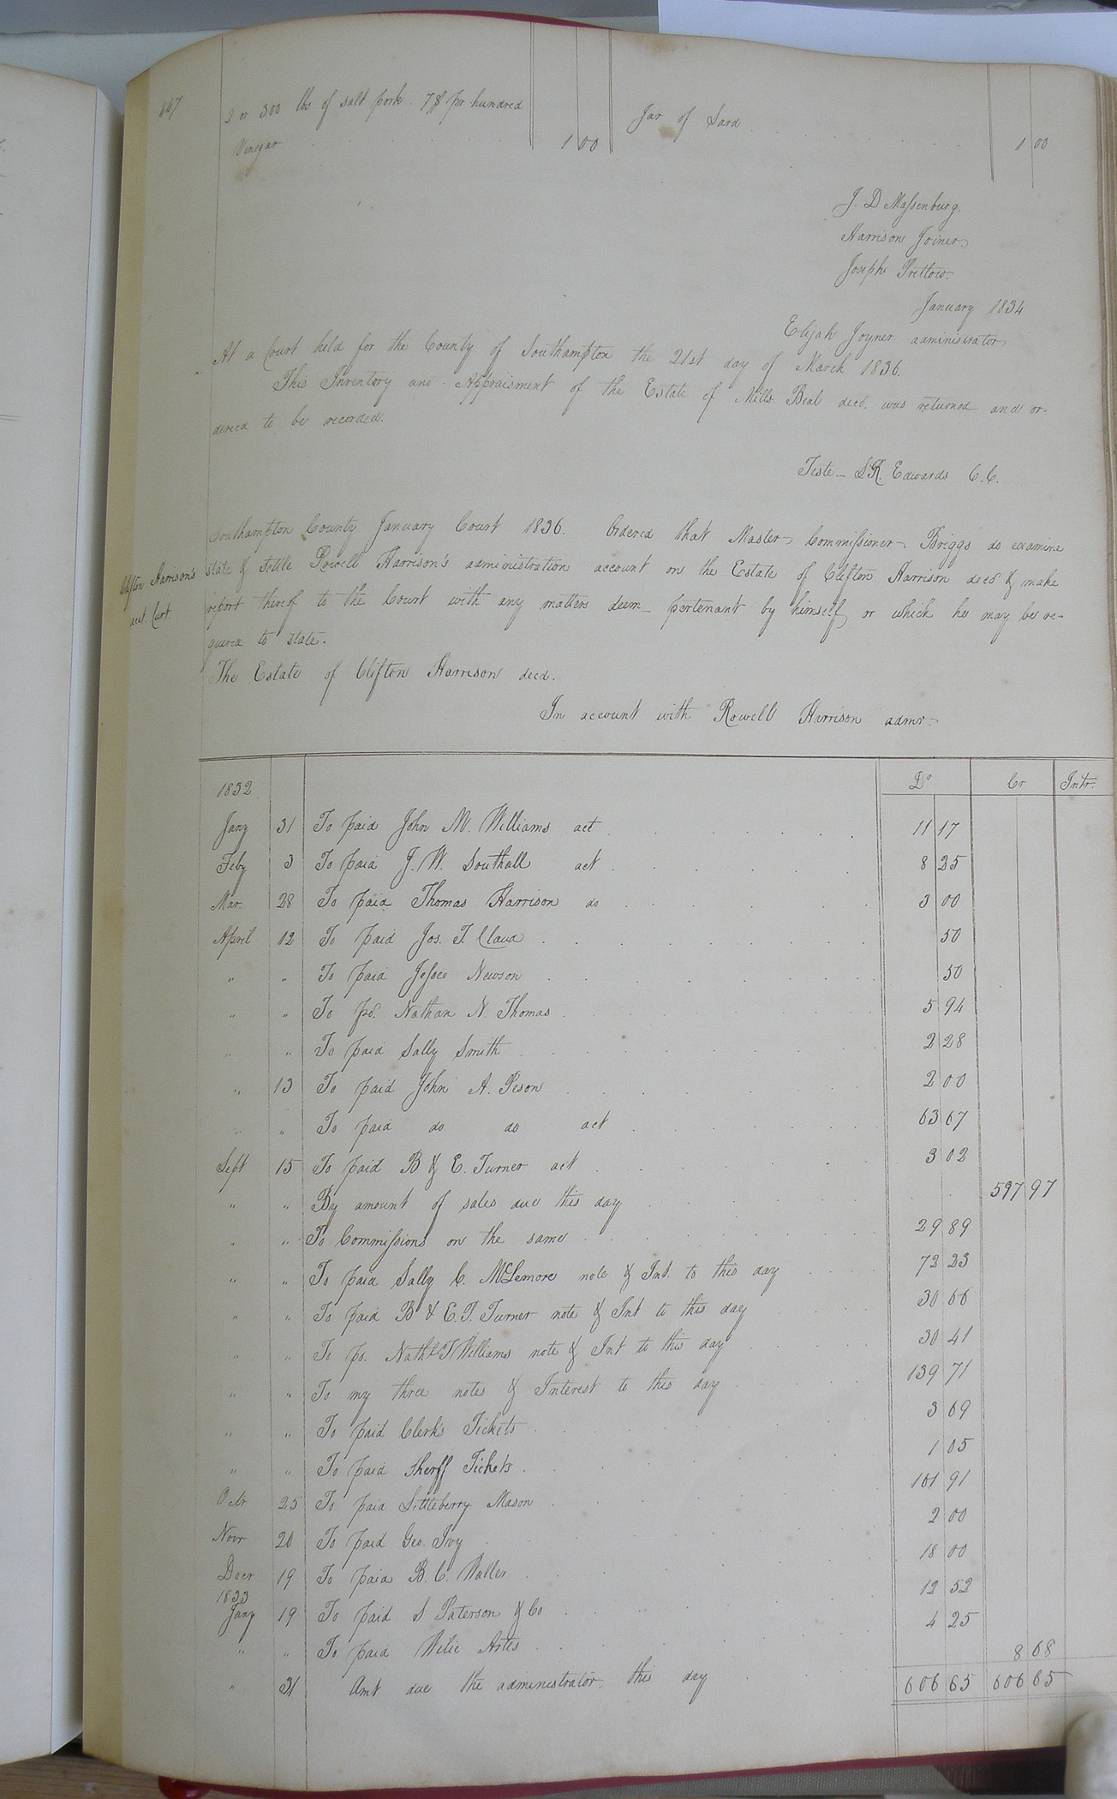 447
2 or 300 lbs of salt pork. 7$ pr hundred
Jar of Lard 1 00
Vinegar 1 00
J. D Massenburg.
Harrison Joiner
Joseph Pretlow
January 1834
Elijah Joyner administrator
At a Court held for the County of Southampton the 21st day of March 1836.
This Inventory and Appraisment of the Estate of Mills Beal decd. was returned and or-
dered to be recorded.
Teste - L R. Edwards C.C.
Southampton County January Court 1836. Ordered that Master Commissioner Briggs do examine
Clifton Harrison's state & settle Rowell Harrison's administration account on the Estate of Clifton Harrison decd & make
acct. Curt. report thereof to the Court with any matters deem pertenant by himself or which he may be re-
quired to state.
The Estate of Clifton Harrison decd.
In account with Rowell Harrison admr.
1832 Dr Cr Intr.
Jany 31 To paid John M. Williams act 11 17
Feby 3 To paid J. W. Southall act 8 25
Mar. 28 To paid Thomas Harrison do 3 00
April 12 To paid Jos. T. Claud 50
" " To paid Jesse Newson 50
" " To pd. Nathan N. Thomas 5 94
" " To paid Sally Smith 2 28
" 13 To paid John A. Peson 2 00
" " To paid do do act 63 67
Sept 15 To paid B & E. Turner act 3 02
" " By amount of sales due this day 597 97
" " To Commissions on the same 29 89
" " To paid Sally C. McLemore note & Int. to this day 72 23
" " To paid B & E. T. Turner note & Int to this day 30 66
" " To pd. Nathl T Williams note & Int to this day 30 41
" " To my three notes & Interest to this day 139 71
" " To paid Clerks Tickets 3 69
" " To paid Sherff Tickets 1 05
Octr 25 To paid Littleberry Mason 161 91
Novr 20 To paid Geo. Ivy 2 00
Decr 19 To paid B. C. Waller 18 00
1833
Jany 19 To paid S Paterson & Co 12 52
" " To paid Wilie Artes 4 25
" 31 Amt due the administrator this day 8 68
606 65 606 65